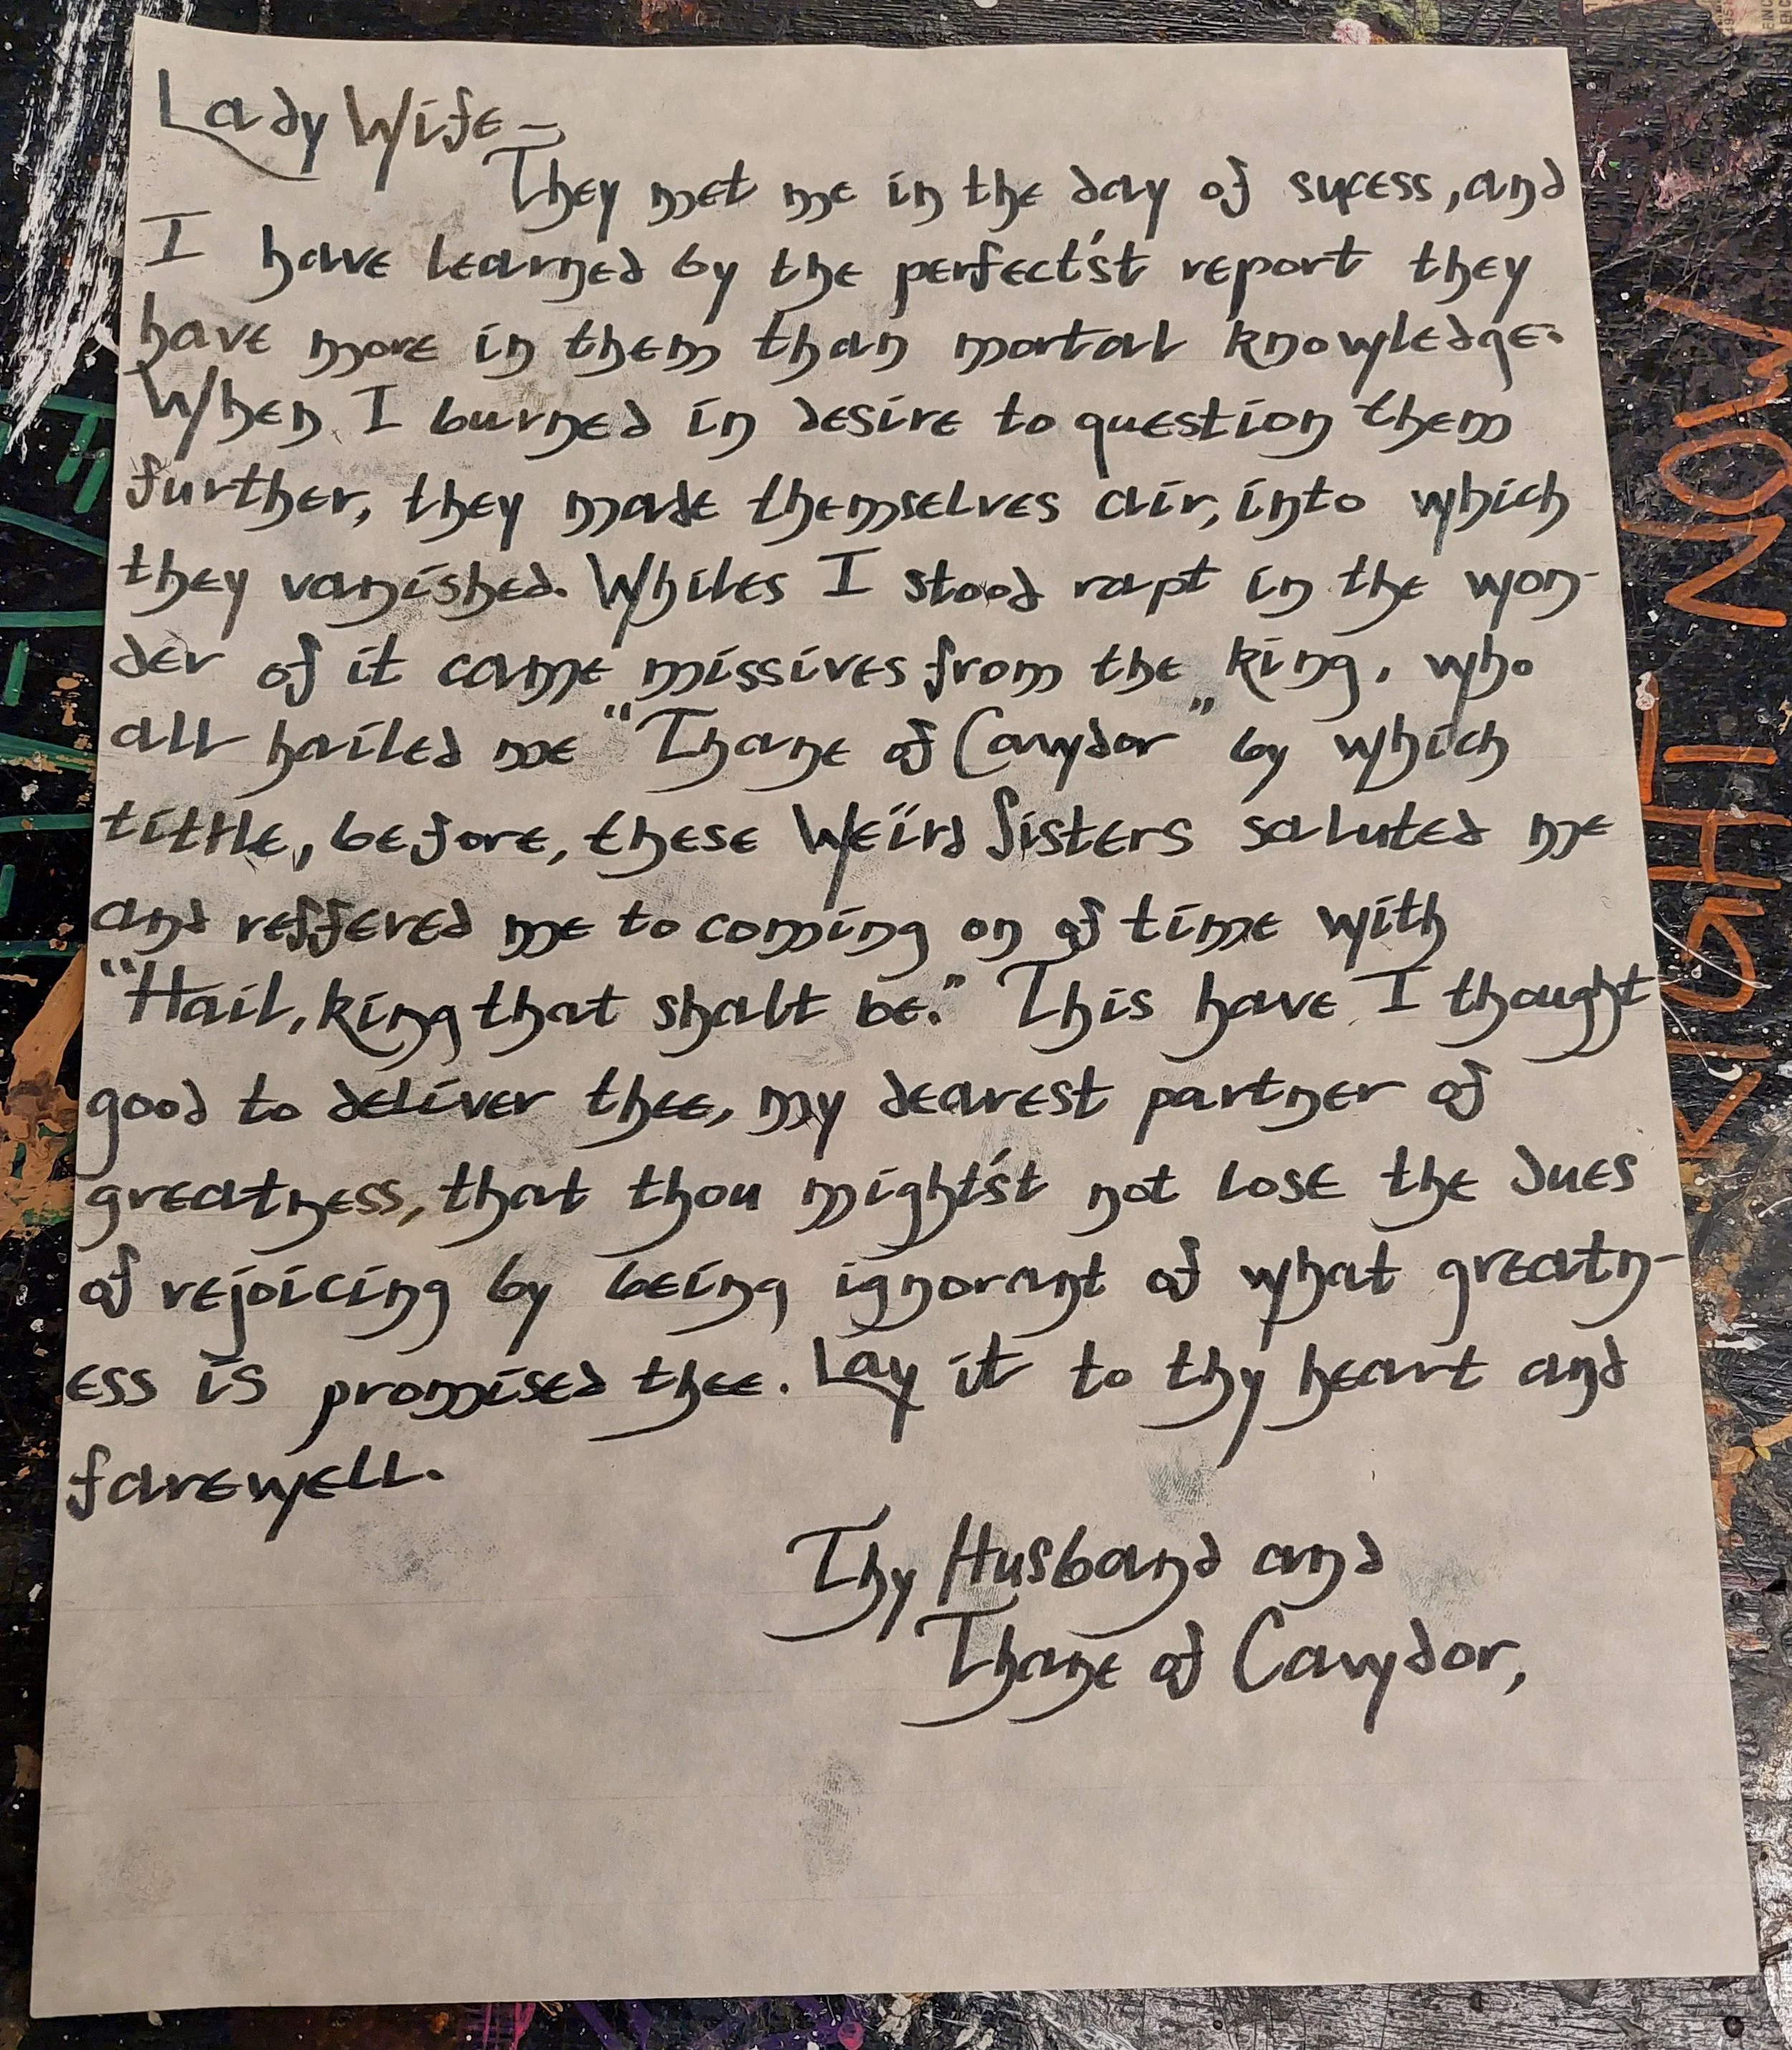 Lady Wife –
They met me in the day of sucess, and
I have learned by the perfect'st report they
have more in them than mortal knowledge.
When I burned in desire to question them
further, they made themselves air, into which
they vanished. Whiles I stood rapt in the won-
der of it came missives from the king, who
all hailed me "Thane of Cawdor" by which
tittle, before, these Weïrd Sisters saluted me
and reffered me to coming on of time with
"Hail, king that shalt be." This have I thought
good to deliver thee, my dearest partner of
greatness, that thou might'st not lose the dues
of rejoicing by being ignorant of what greatn-
ess is promised thee. Lay it to thy heart and
farewell.
Thy Husband and
Thane of Cawdor,
NOW
RIGHT